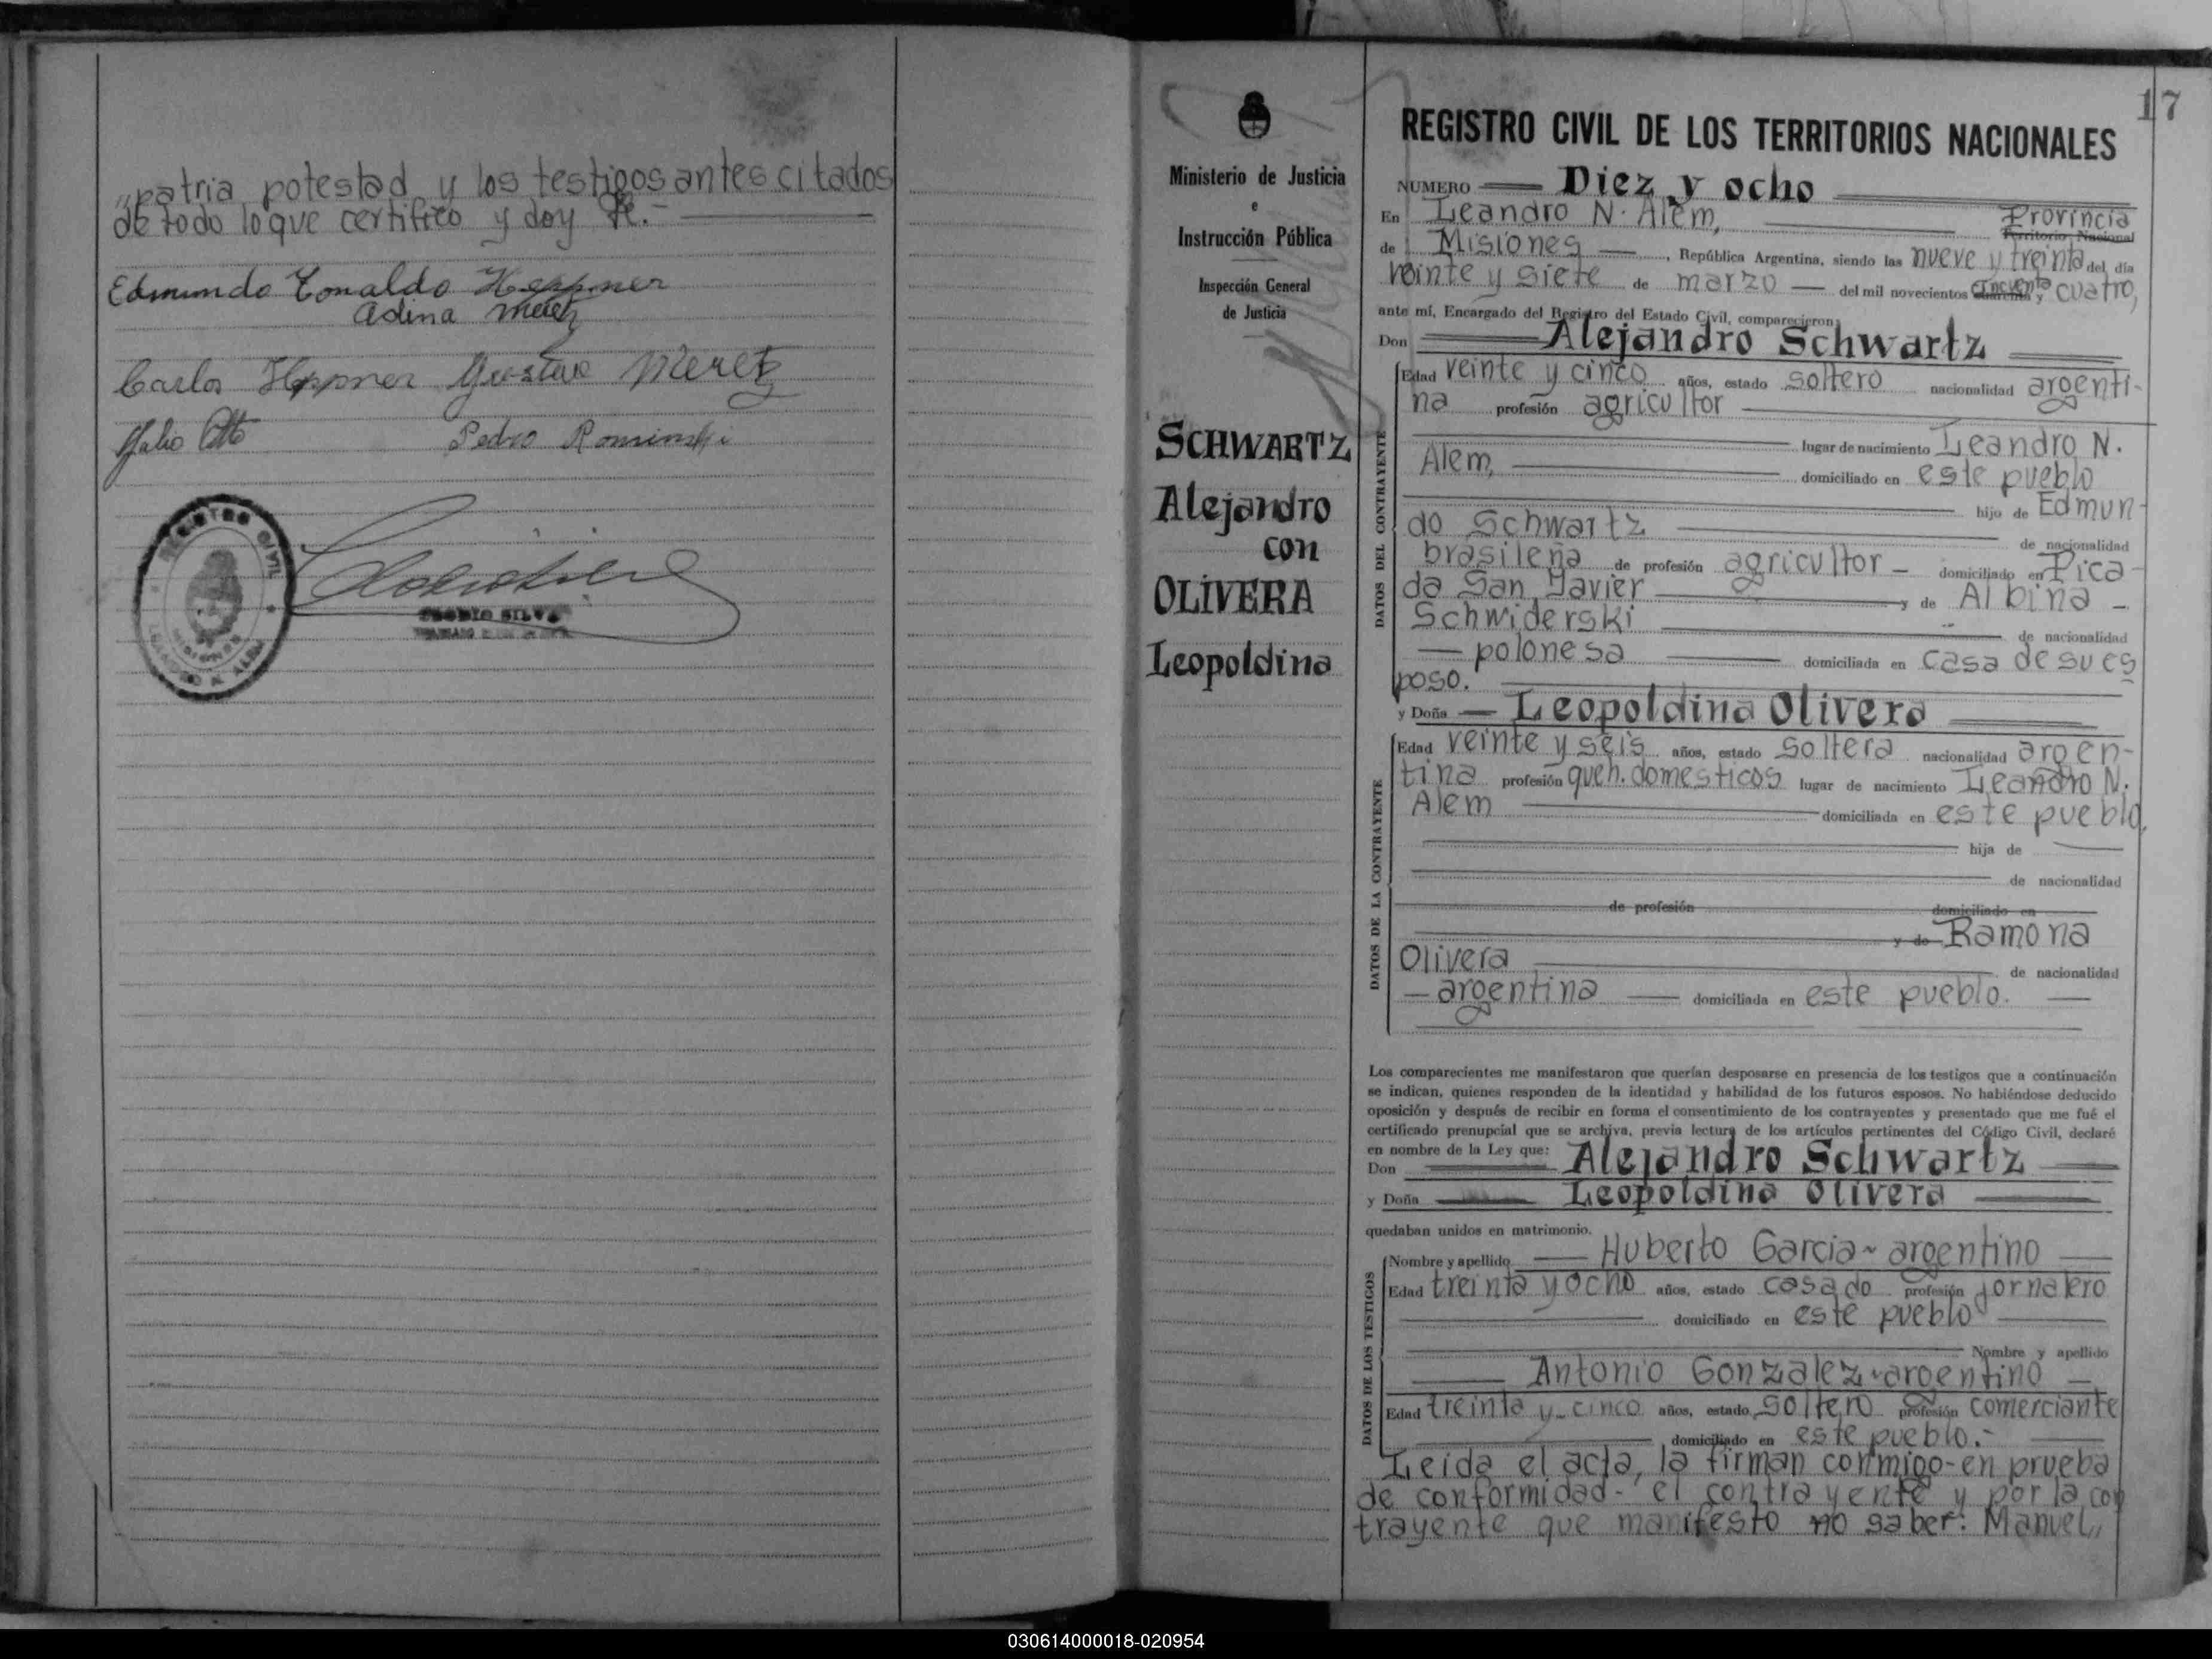 „patria potestad y los testigos antes citados
de todo lo que certifico y doy fe.-
Edmundo Heppner
Adina
Carlos Heppner Gustavo Meretz
Julio Otto Pedro Rominski
REGISTRO CIVIL
MISIONES
LEANDRO N. ALEM
SILVA
17
Ministerio de Justicia
e
Instrucción Pública
Inspección General
de Justicia
SCHWARTZ
Alejandro
con
OLIVERA
Leopoldina
REGISTRO CIVIL DE LOS TERRITORIOS NACIONALES
NUMERO Diez y ocho
En Leandro N. Alem, Provincia
Territorio Nacional
de Misiones, República Argentina, siendo las nueve y treinta del día
veinte y siete de marzo del mil novecientos cuarenta y cincuenta cuatro,
ante mí, Encargado del Registro del Estado Civil, comparecieron:
Don Alejandro Schwartz
DATOS DEL CONTRAYENTE
Edad veinte y cinco años, estado soltero nacionalidad argenti-
na profesión agricultor
lugar de nacimiento Leandro N.
Alem, domiciliado en este pueblo
hijo de Edmun-
do Schwartz de nacionalidad
brasileña de profesión agricultor - domiciliado en Pica-
da San Javier y de Albina -
Schwiderski de nacionalidad
— polonesa domiciliada en casa de su es
poso.
y Doña — Leopoldina Olivera
DATOS DE LA CONTRAYENTE
Edad veinte y seis años, estado soltera nacionalidad argen-
tina profesión queh. domesticos lugar de nacimiento Leandro N.
Alem domiciliada en este pueblo,
hija de
de nacionalidad
de profesión domiciliado en
y de Ramona
Olivera de nacionalidad
— argentina — domiciliada en este pueblo. —
Los comparecientes me manifestaron que querían desposarse en presencia de los testigos que a continuación
se indican, quienes responden de la identidad y habilidad de los futuros esposos. No habiéndose deducido
oposición y después de recibir en forma el consentimiento de los contrayentes y presentado que me fué el
certificado prenupcial que se archiva, previa lectura de los artículos pertinentes del Código Civil, declaré
en nombre de la Ley que:
Don Alejandro Schwartz
y Doña Leopoldina Olivera
quedaban unidos en matrimonio.
DATOS DE LOS TESTIGOS
Nombre y apellido — Huberto Garcia - argentino
Edad treinta y ocho años, estado casado profesión jornalero
domiciliado en este pueblo
Nombre y apellido
Antonio Gonzalez - argentino —
Edad treinta y cinco años, estado soltero profesión comerciante
domiciliado en este pueblo.-
Leida el acta, la firman conmigo - en prueba
de conformidad - el contrayente y por la con
trayente que manifesto no saber: Manuel„
030614000018-020954